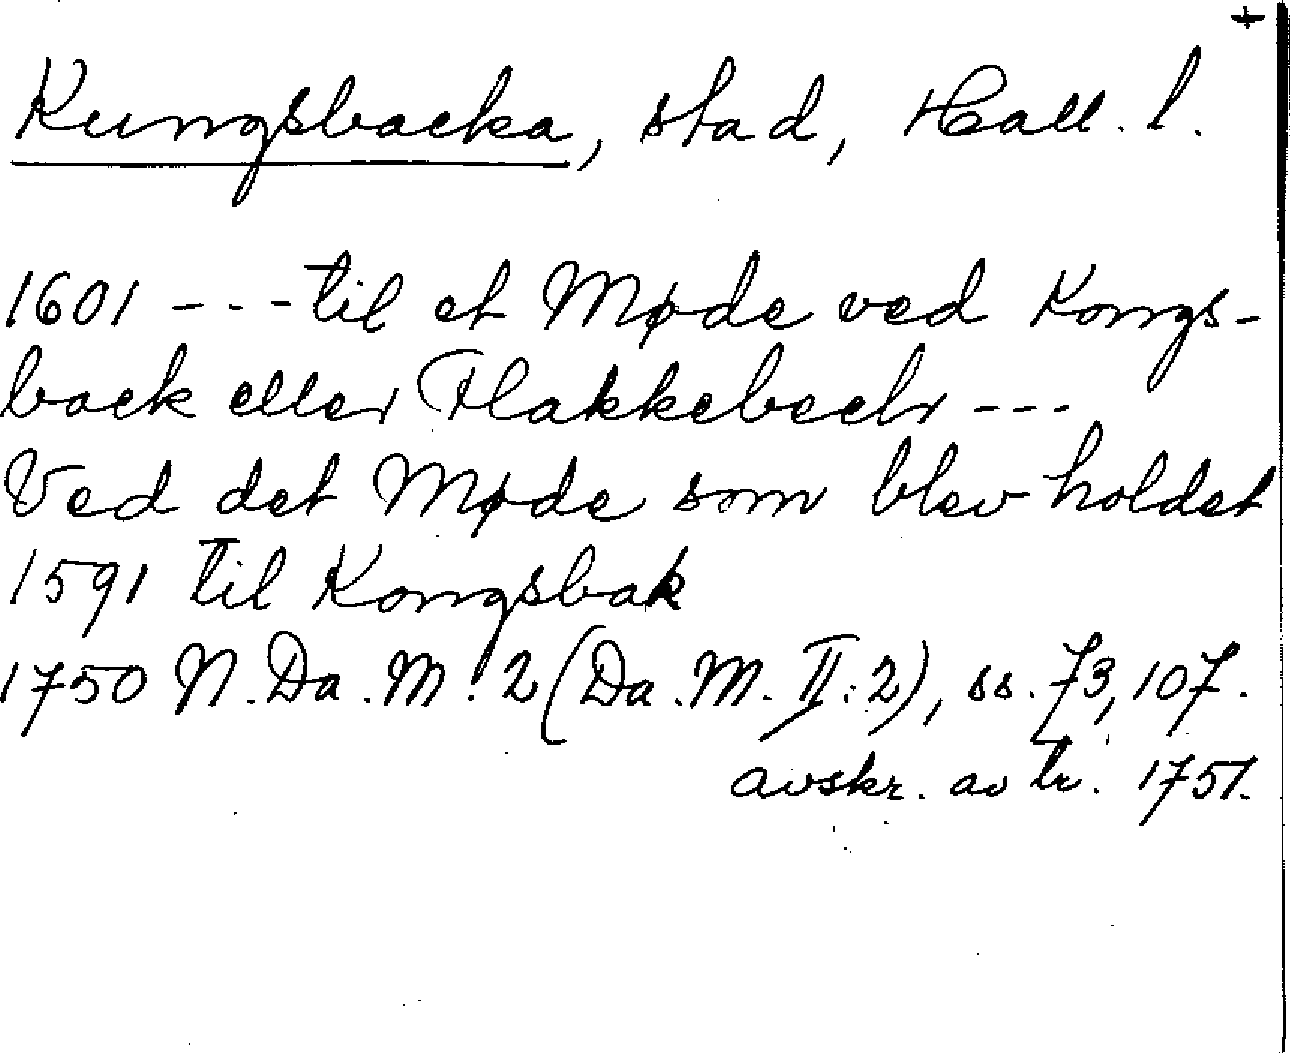 +
Kungsbacka, stad, Hall. l.
1601 --- til et Møde ved Kongs-
back eller Flakkebeck ---
Ved det Møde som blev holdet
1591 til Kongsbak
1750 N. Da. M. 2 (Da. M. II: 2), ss. 73, 107.
avskr. av tr. 1751.